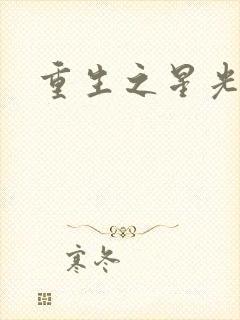 重生之星光
寒冬